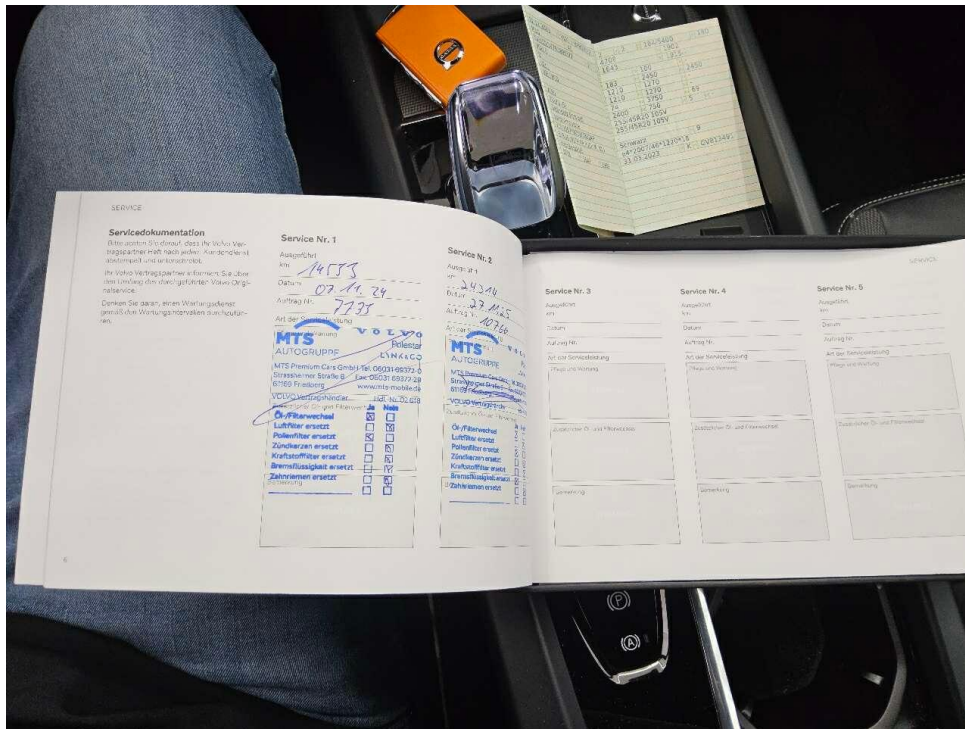 SERVICE
Servicedokumentation
Bitte achten Sie darauf, dass Ihr Volvo Ver-
tragspartner Heft nach jedem Kundendienst
abstempelt und unterschreibt.
Ihr Volvo Vertragspartner informiert Sie über
den Umfang des durchgeführten Volvo Origi-
nalservice.
Denken Sie daran, einen Wartungsdienst
gemäß den Wartungsintervallen durchzufüh-
ren.
6
Service Nr. 1
Ausgeführt
km 14533
Datum 07.11.24
Auftrag Nr. 7135
Art der Serviceleistung
MTS VOLVO
Polestar
AUTOGRUPPE LYNK&CO
MTS Premium Cars GmbH Tel. 06031 69377-0
Strassheimer Straße 6 Fax 06031 69377-29
61169 Friedberg www.mts-mobile.de
VOLVO Vertragshändler
Ja Nein
Öl-/Filterwechsel
Luftfilter ersetzt
Pollenfilter ersetzt
Zündkerzen ersetzt
Kraftstofffilter ersetzt
Bremsflüssigkeit ersetzt
Zahnriemen ersetzt
Service Nr. 2
Ausgeführt
km 24314
Datum 27.11.25
Auftrag Nr. 10766
Art der
MTS
AUTOGRUPPE
MTS Premium Cars
61169 Friedberg
VOLVO Vertragshändler
Öl-/Filterwechsel
Luftfilter ersetzt
Pollenfilter ersetzt
Zündkerzen ersetzt
Kraftstofffilter ersetzt
Bremsflüssigkeit ersetzt
Zahnriemen ersetzt
SERVICE
Service Nr. 3
Ausgeführt
km
Datum
Auftrag Nr.
Art der Serviceleistung
Pflege und Wartung
Zusätzlicher Öl- und Filterwechsel
Bemerkung
Service Nr. 4
Ausgeführt
km
Datum
Auftrag Nr.
Art der Serviceleistung
Pflege und Wartung
Zusätzlicher Öl- und Filterwechsel
Bemerkung
Service Nr. 5
Ausgeführt
km
Datum
Auftrag Nr.
Art der Serviceleistung
Pflege und Wartung
Zusätzlicher Öl- und Filterwechsel
Bemerkung
255/45R20 105V
255/45R20 105V
Schwarz
e4*2007/46*1220*18
23.03.2023
(P)
(A)